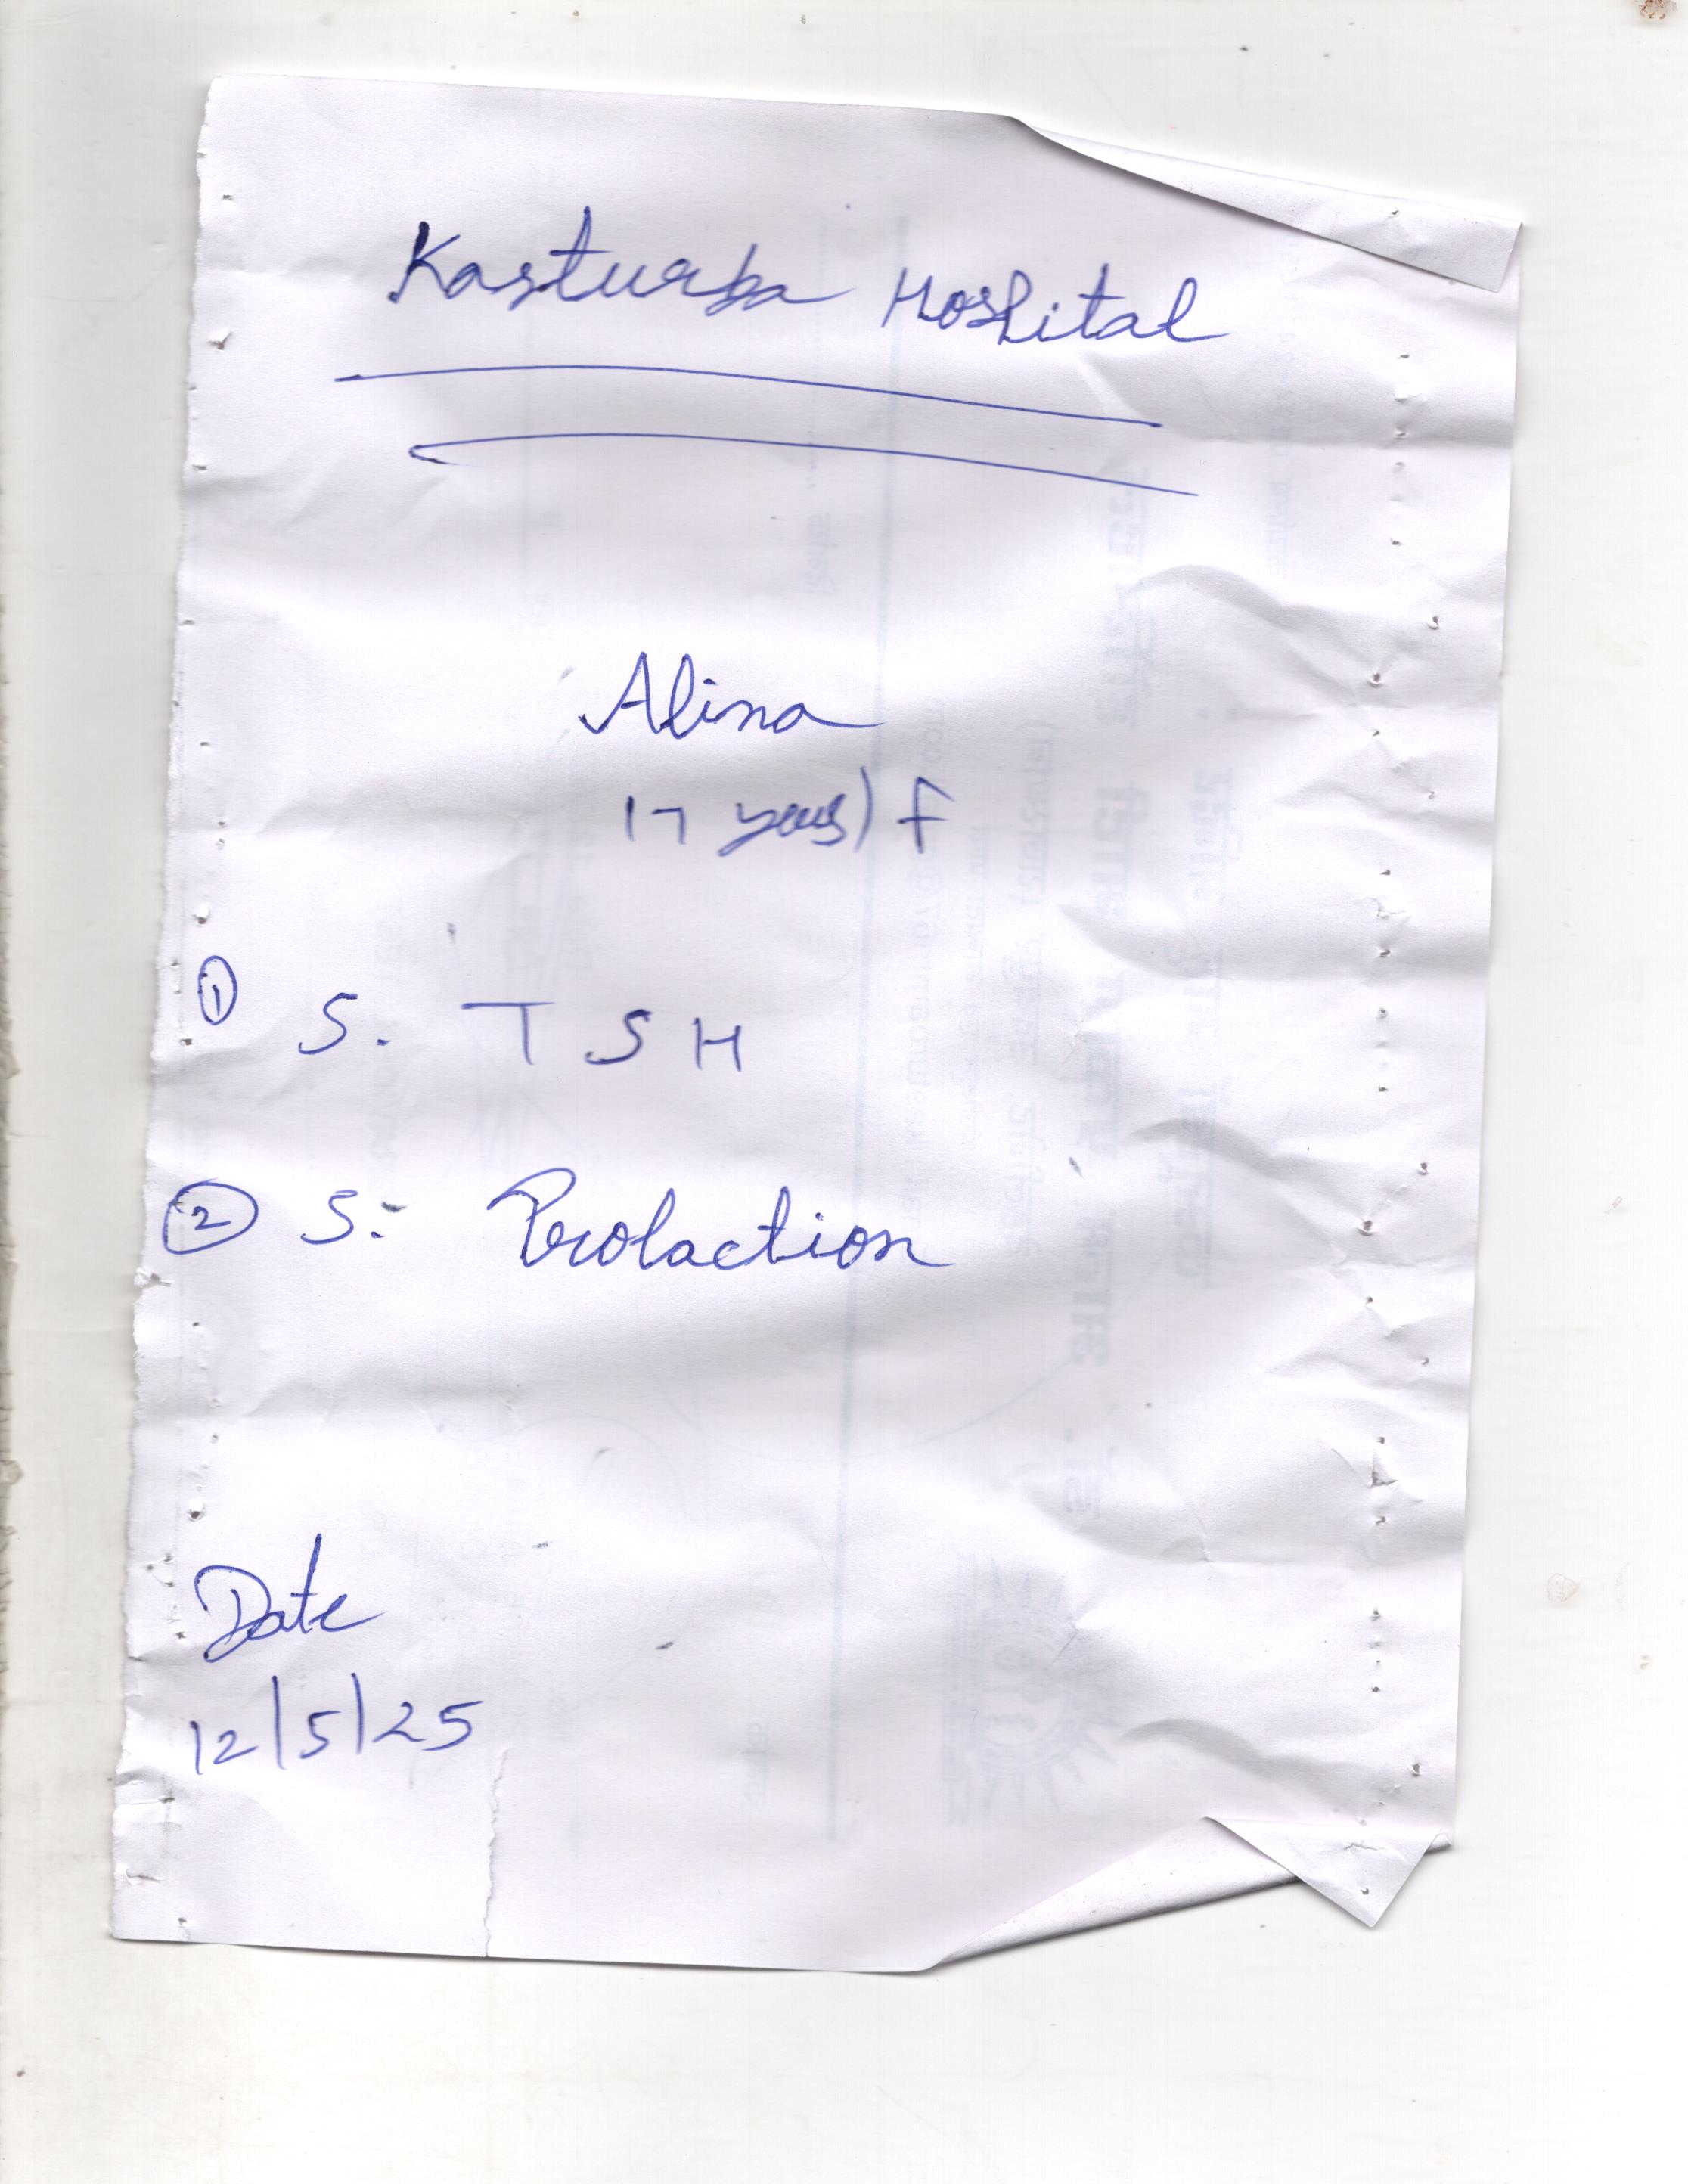 Kasturba Hospital
Alina
17 years) F
① S. TSH
② S. Prolaction
Date
12/5/25